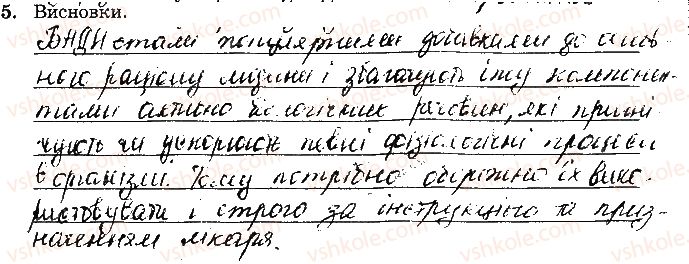 5. Висновки.
БНДН стали популярними добавками до основ
ного раціону людини і збагачують їжу компонен-
тами активно біологічних речовин, які прини
жують чи ускорюють певні фізіологічні процеси
в організмі. Тому потрібно обережно їх вико-
ристовувати і строго за інструкцією та приз-
наченням лікаря.